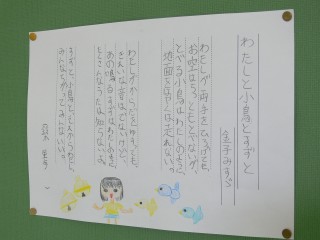 わたしと小鳥とすずと
金子みすゞ
わたしが両手をひろげても、
お空はちっともとべないが、
とべる小鳥はわたしのように、
地面を速くは走れない。
わたしがからだをゆすっても、
きれいな音はでないけど、
あの鳴るすずはわたしのように
たくさんなうたは知らないよ。
すずと、小鳥と、それからわたし、
みんなちがって、みんないい。